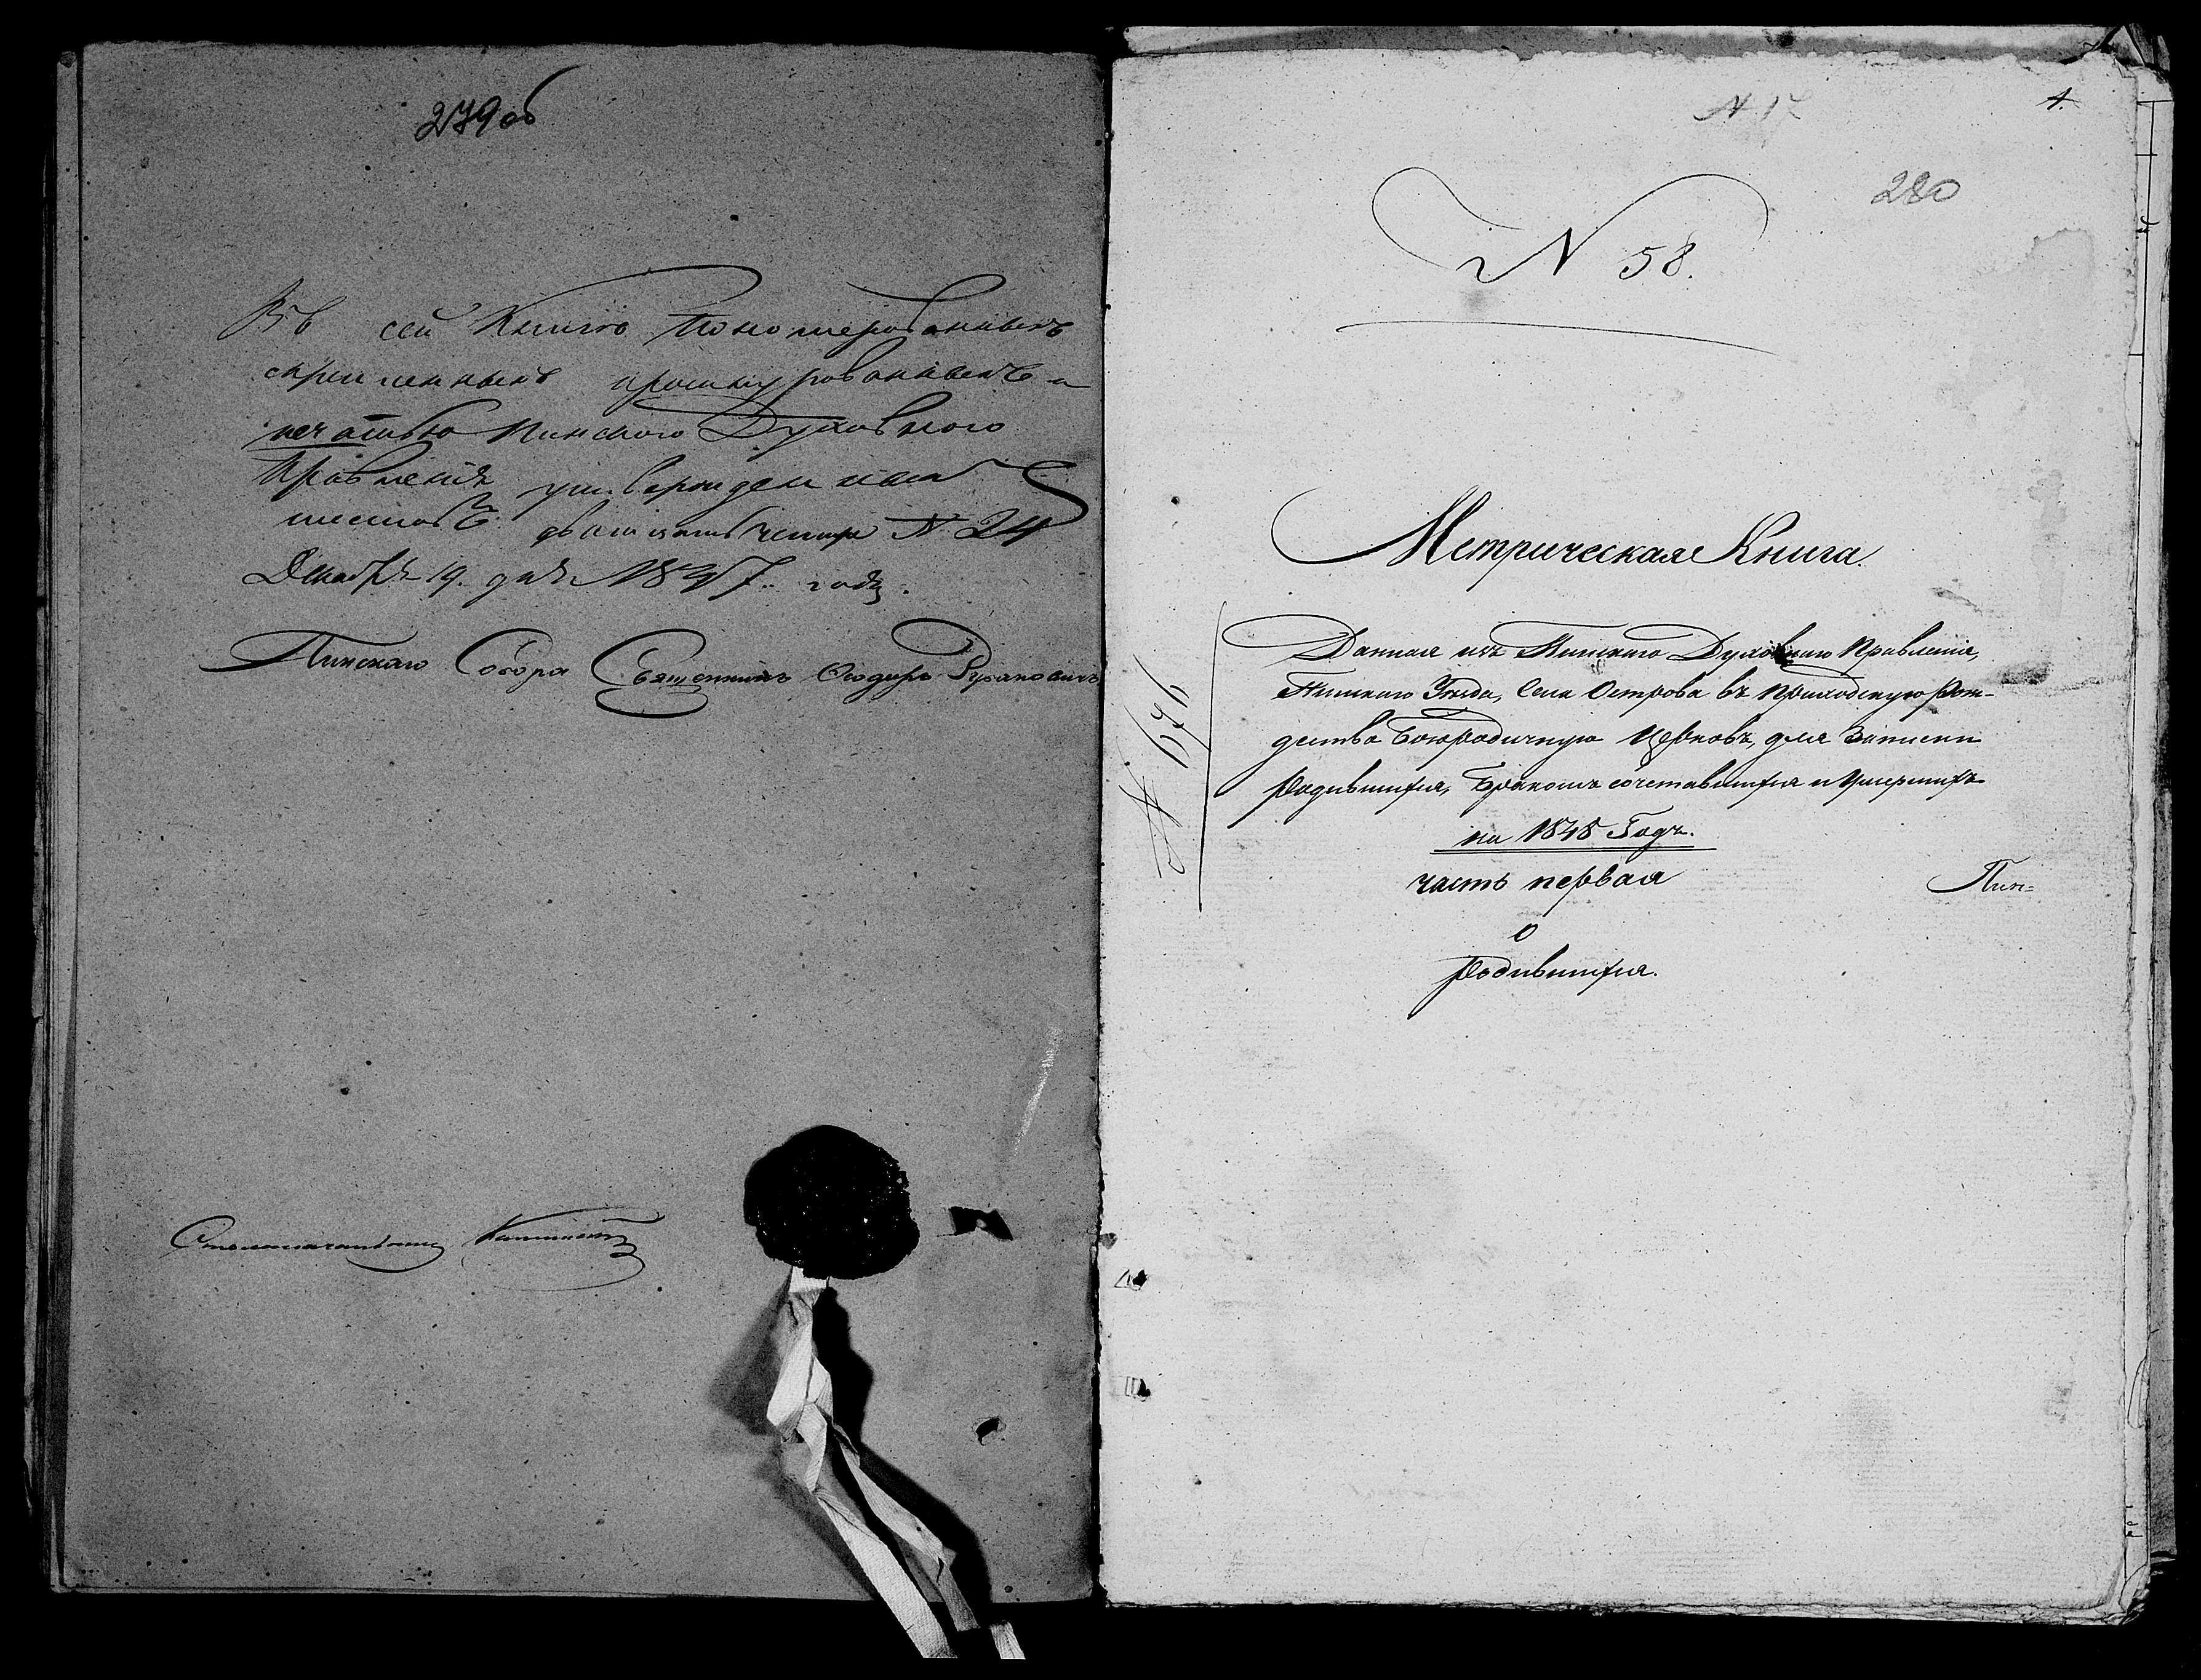 279 об
Въ сей Книгѣ Пономерованныхъ
скрепленныхъ прошнурованныхъ и
печатью Пинского Духовного
Правленія утвержденныхъ
листовъ двадцать четыре № 24
Декабря 19. дня 1847. года.
Пинскаго Собора Священникъ Феодоръ
Столоначальникъ
4.
280
N 58.
Метрическая Книга.
Данная изъ Пинскаго Духовнаго Правленія,
Пинскаго Уезда, Села Острова въ приходскую Рож-
дества Богородичную Церковь, для Записки
родившихся, бракомъ сочетавшихся и Умершихъ
на 1848 Годъ.
часть первая
Пин=
о
родившихся.
№ 676